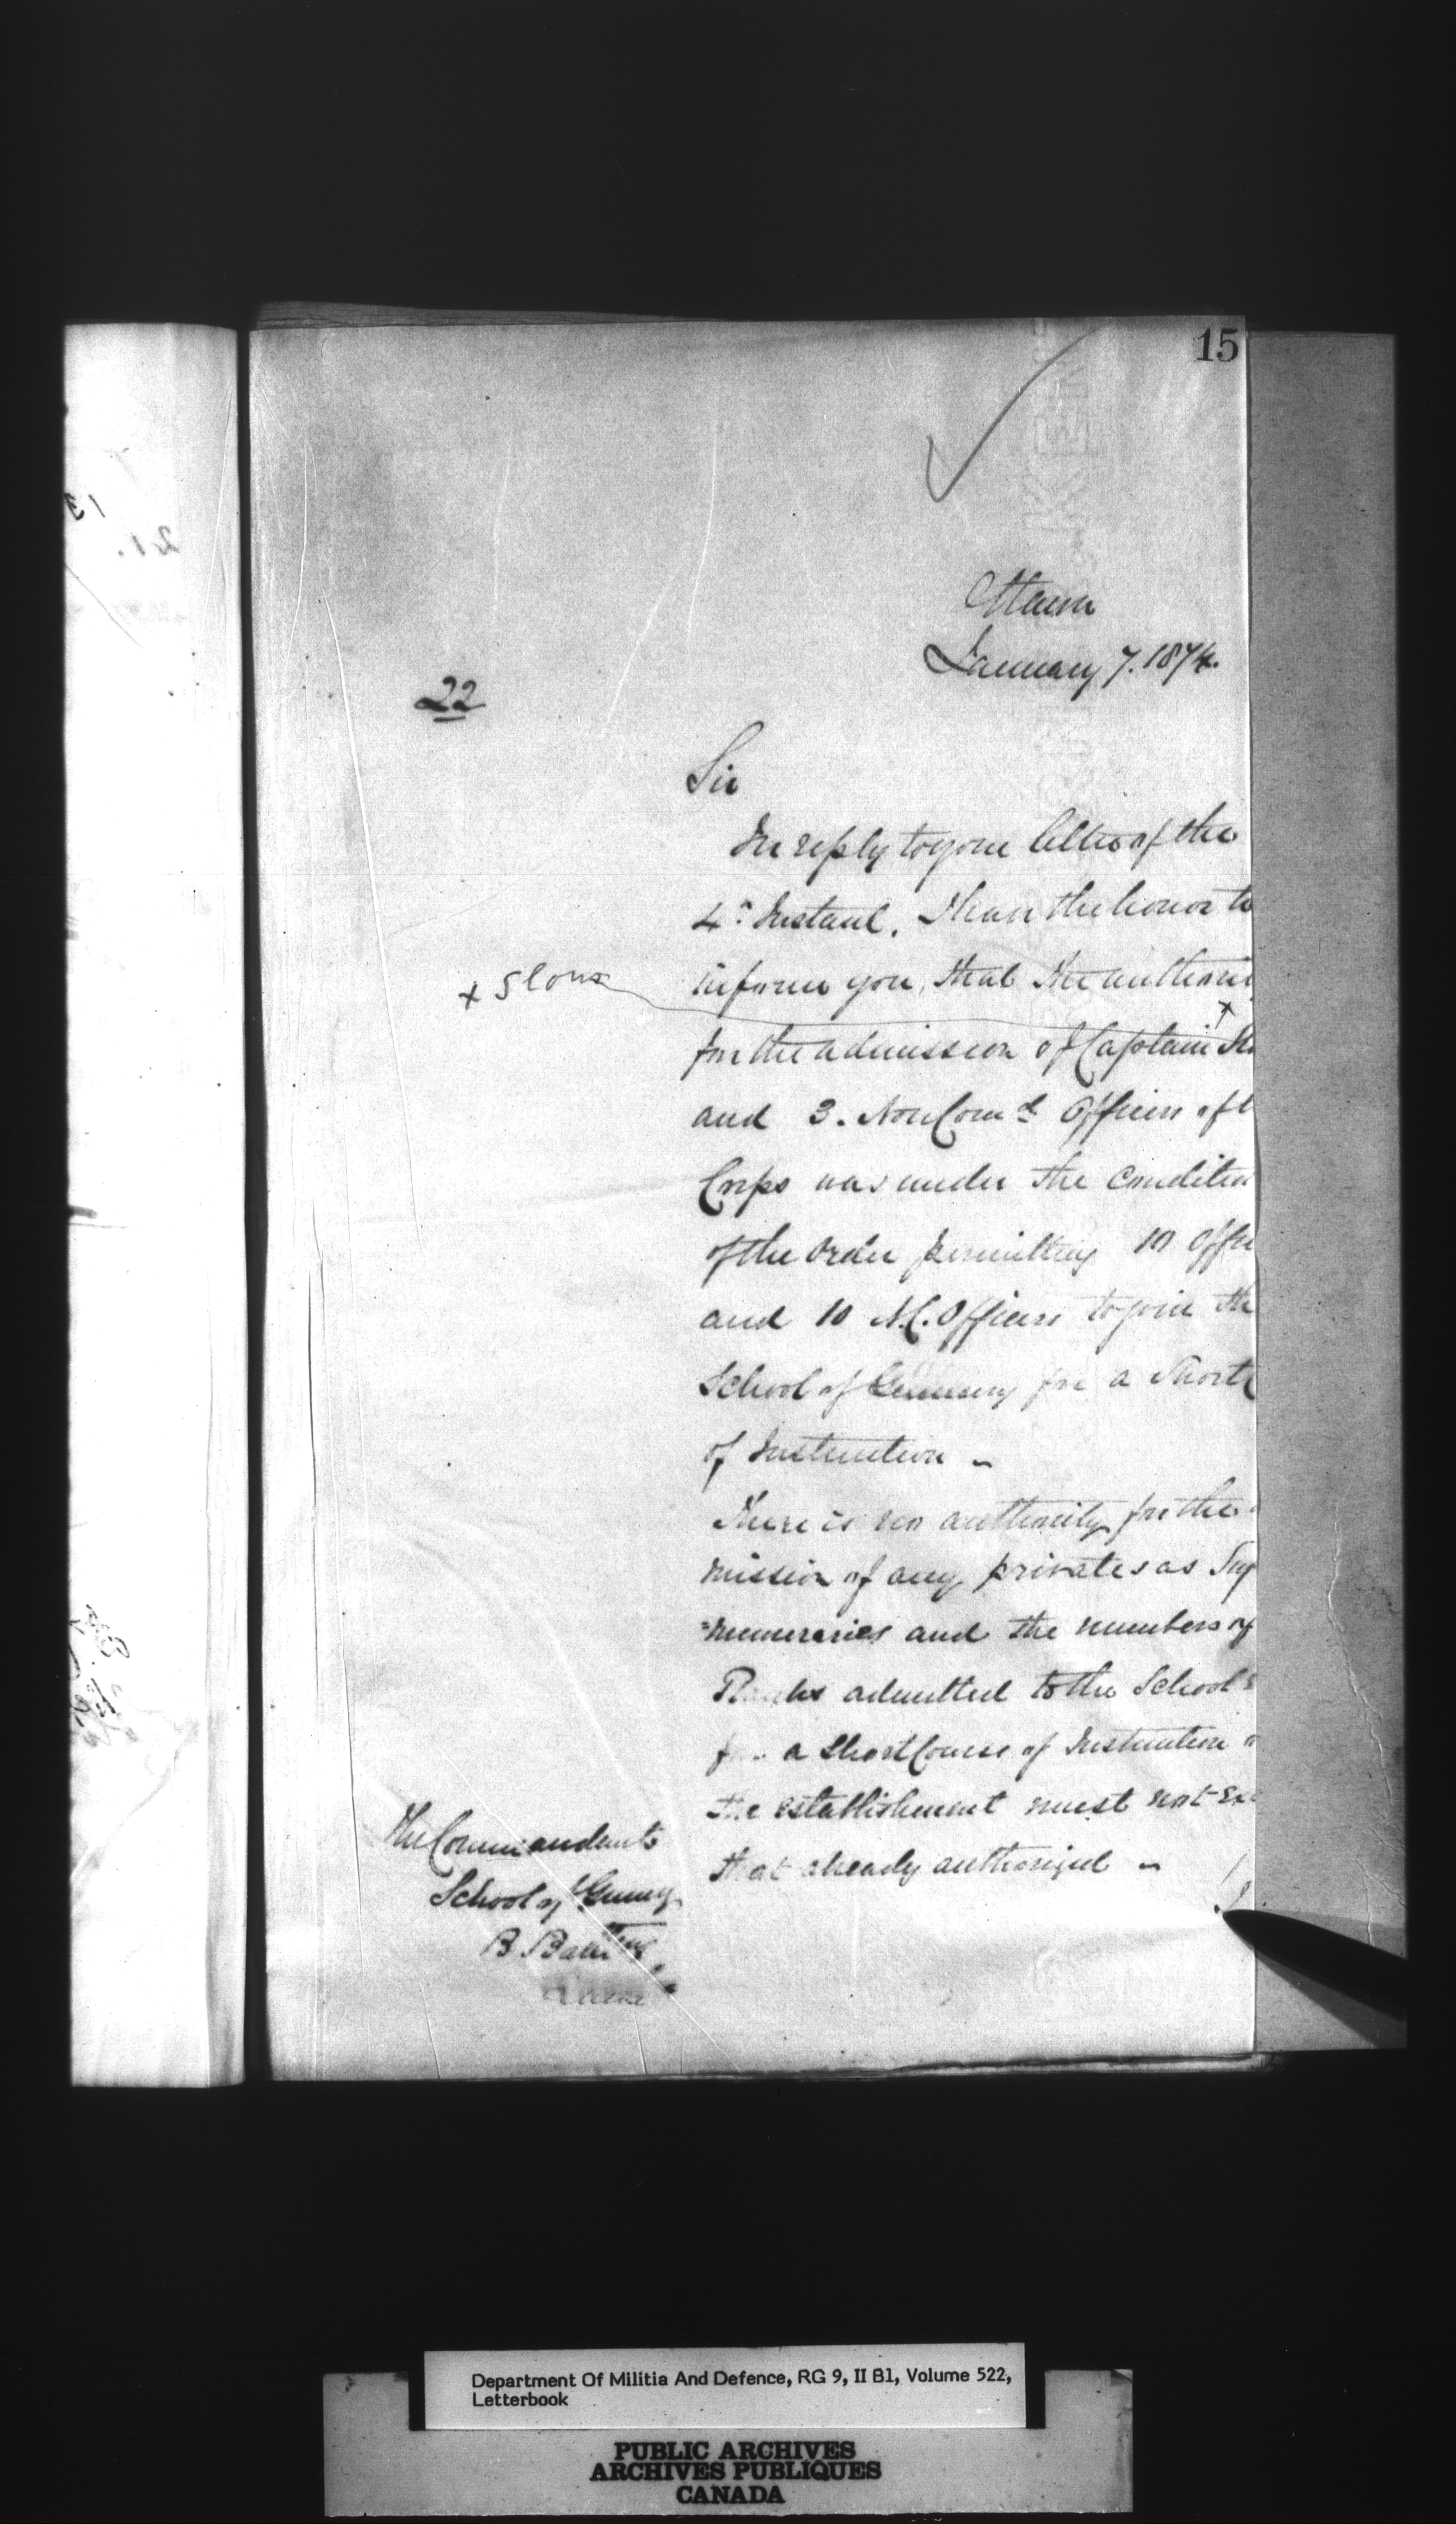 15
Ottawa
January 7. 1874.
22
Sir
In reply to your letter of the
4th Instant, I have the honor to
+ Slow
inform you, that the authori
x
for the admission of Captain
and 3. Non Comd Officers of t
Corps was under the condition
of the order permitting 10 Offi
and 10 N.C. Officers to join th
School of Gunnery for a Short C
of Instruction -
There is no authority for the
mission of any privates as Sup
=numeraries and the numbers of
Ranks admitted to the School
for a Short Course of Instruction
the establishment must not Exc
that already authorized -
The Commandant
School of Gunnery
B. Battery
21.
Department Of Militia And Defence, RG 9, II B1, Volume 522,
Letterbook
PUBLIC ARCHIVES
ARCHIVES PUBLIQUES
CANADA